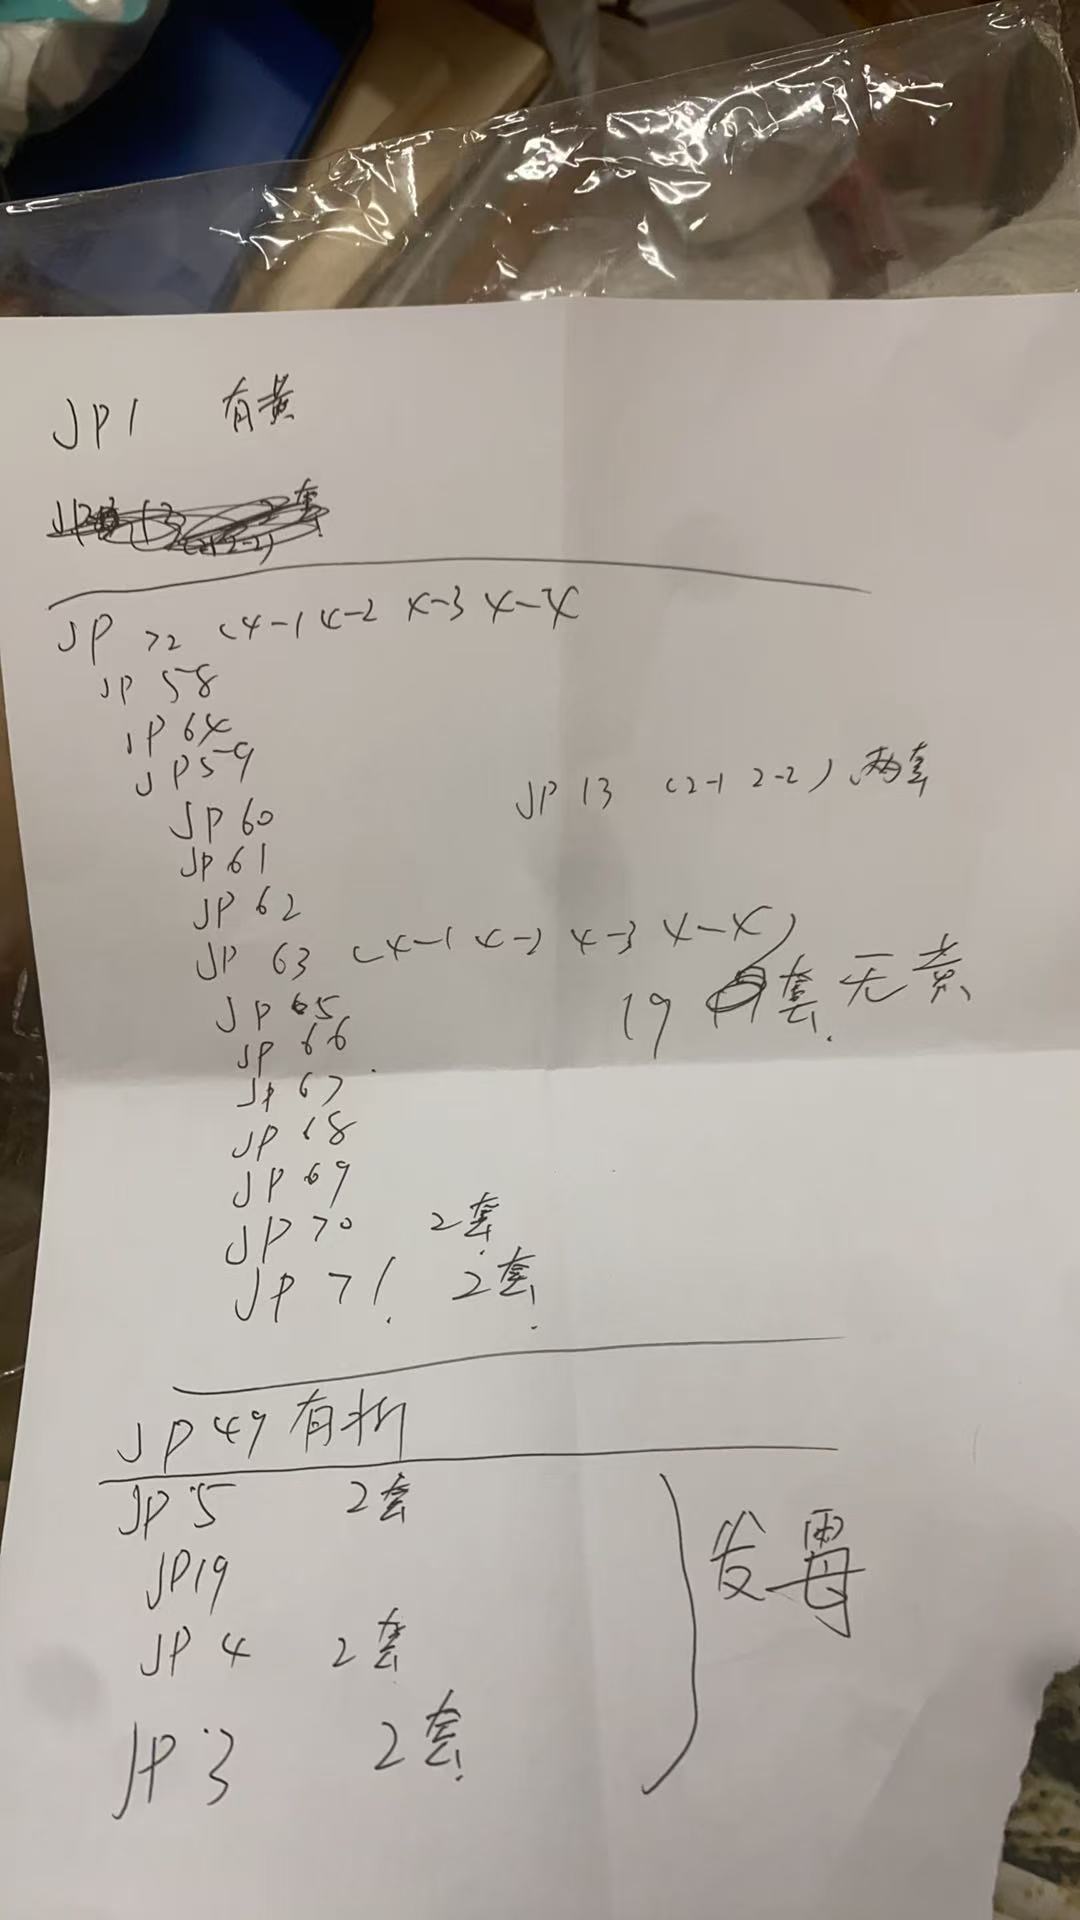 JP1 有黄
JP 72 (4-1 4-2 4-3 4-4
JP 58
JP 64
JP 59
JP 13 (2-1 2-2) 两套
JP 60
JP 61
JP 62
JP 63 (4-1 4-2 4-3 4-4)
19 套 无黄
JP 65
JP 66
JP 67
JP 68
JP 69
JP 70 2套
JP 71 2套
JP 49 有折
JP 5 2套
JP19
发霉
JP 4 2套
JP 3 2套